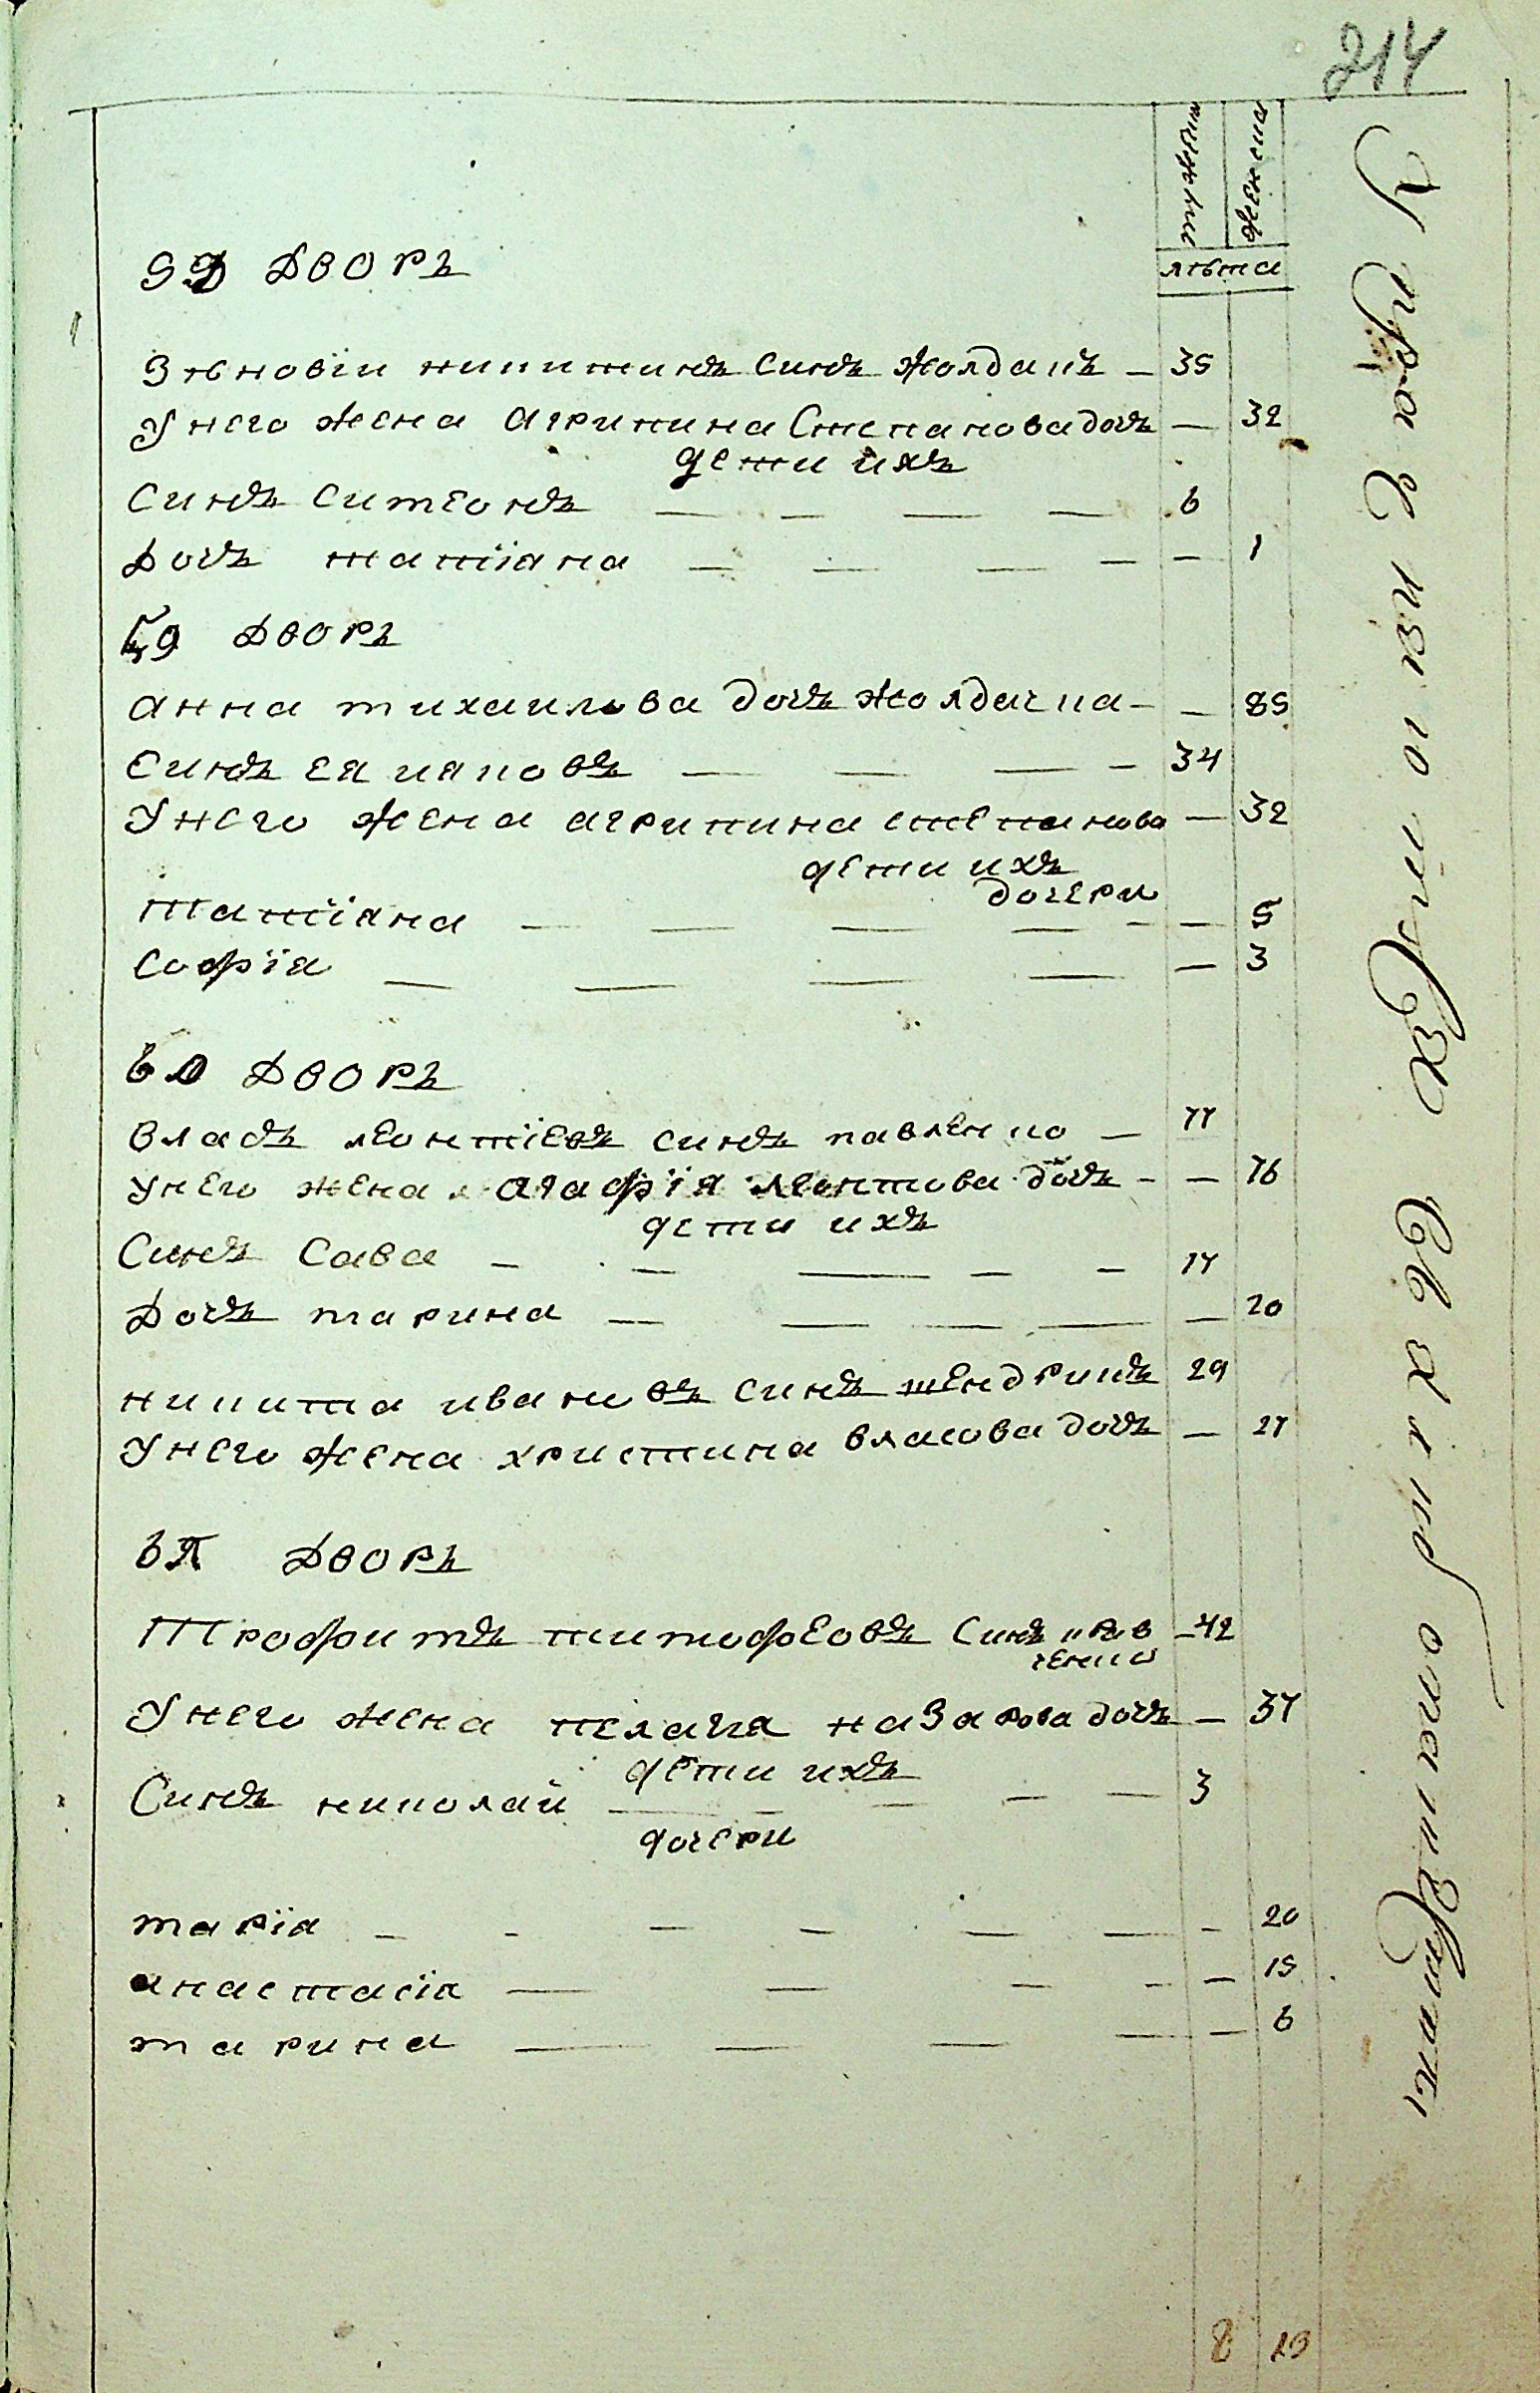 214
мужескъ
женска
лѣта
59 ДВОРЪ
Зѣновіи никитинъ синъ жолдакъ — 35
У него жена агрипина Степановадочъ — 32
дети ихъ
синъ симеонъ — — — — 6
Дочъ татіяна — — — — — 1
59 ДВОРЪ
анна михаилова дочъ жолдачка — — 85
синъ ея яковъ — — — — 34
У него жена агрипина степанова — 32
дети ихъ
дочери
татіяна — — — — — — 5
софїя — — — — — 3
60 ДВОРЪ
Власъ леонтїевъ синъ павленко — 77
У него жена агафїя леонтова дочъ — — 76
дети ихъ
Синъ Сава — — — — — 17
Дочъ марина — — — — — 20
никита ивановъ синъ шендрикъ 29
У него жена христина власова дочъ — 27
ДВОРЪ
Трофимъ тимофеовъ Синъ крав — 42
ченко
У него жена пелагия назарова дочъ — 37
дети ихъ
Синъ николай — — — — — 3
дочери
марїя — — — — — — — 20
анастасїя — — — — — 15
марина — — — — — 6
8 19